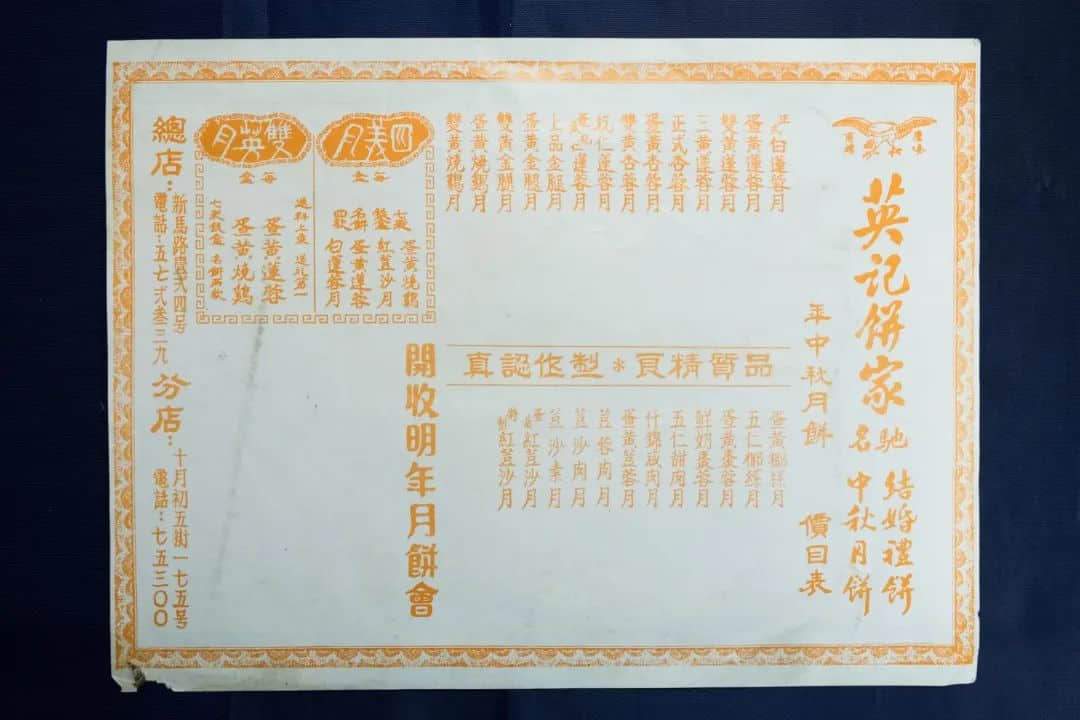 英記餅家
馳名
結婚禮餅
中秋月餅
年中秋月餅
價目表
蛋黃蓮蓉月
雙黃蓮蓉月
三黃蓮蓉月
正式杏蓉月
蛋黃杏蓉月
雙黃杏蓉月
上品金腿月
蛋黃金腿月
雙黃金腿月
蛋黃燒鷄月
雙黃燒鷄月
品質精良*製作認真
蛋黃椰絲月
五仁椰絲月
蛋黃棗蓉月
鮮奶棗蓉月
五仁甜肉月
什錦咸肉月
蛋黃荳蓉月
荳蓉肉月
荳沙肉月
荳沙素月
紅荳沙月
紅荳沙月
開收明年月餅會
四義月
每盒
蛋黃燒鷄
紅荳沙月
蛋黃蓮蓉
雙英月
每盒
送禮第一
蛋黃蓮蓉
蛋黃燒鷄
總店：
新馬路壹弍四号
電話：五七弍叁三九
分店：
十月初五街一七五号
電話：七五三〇〇